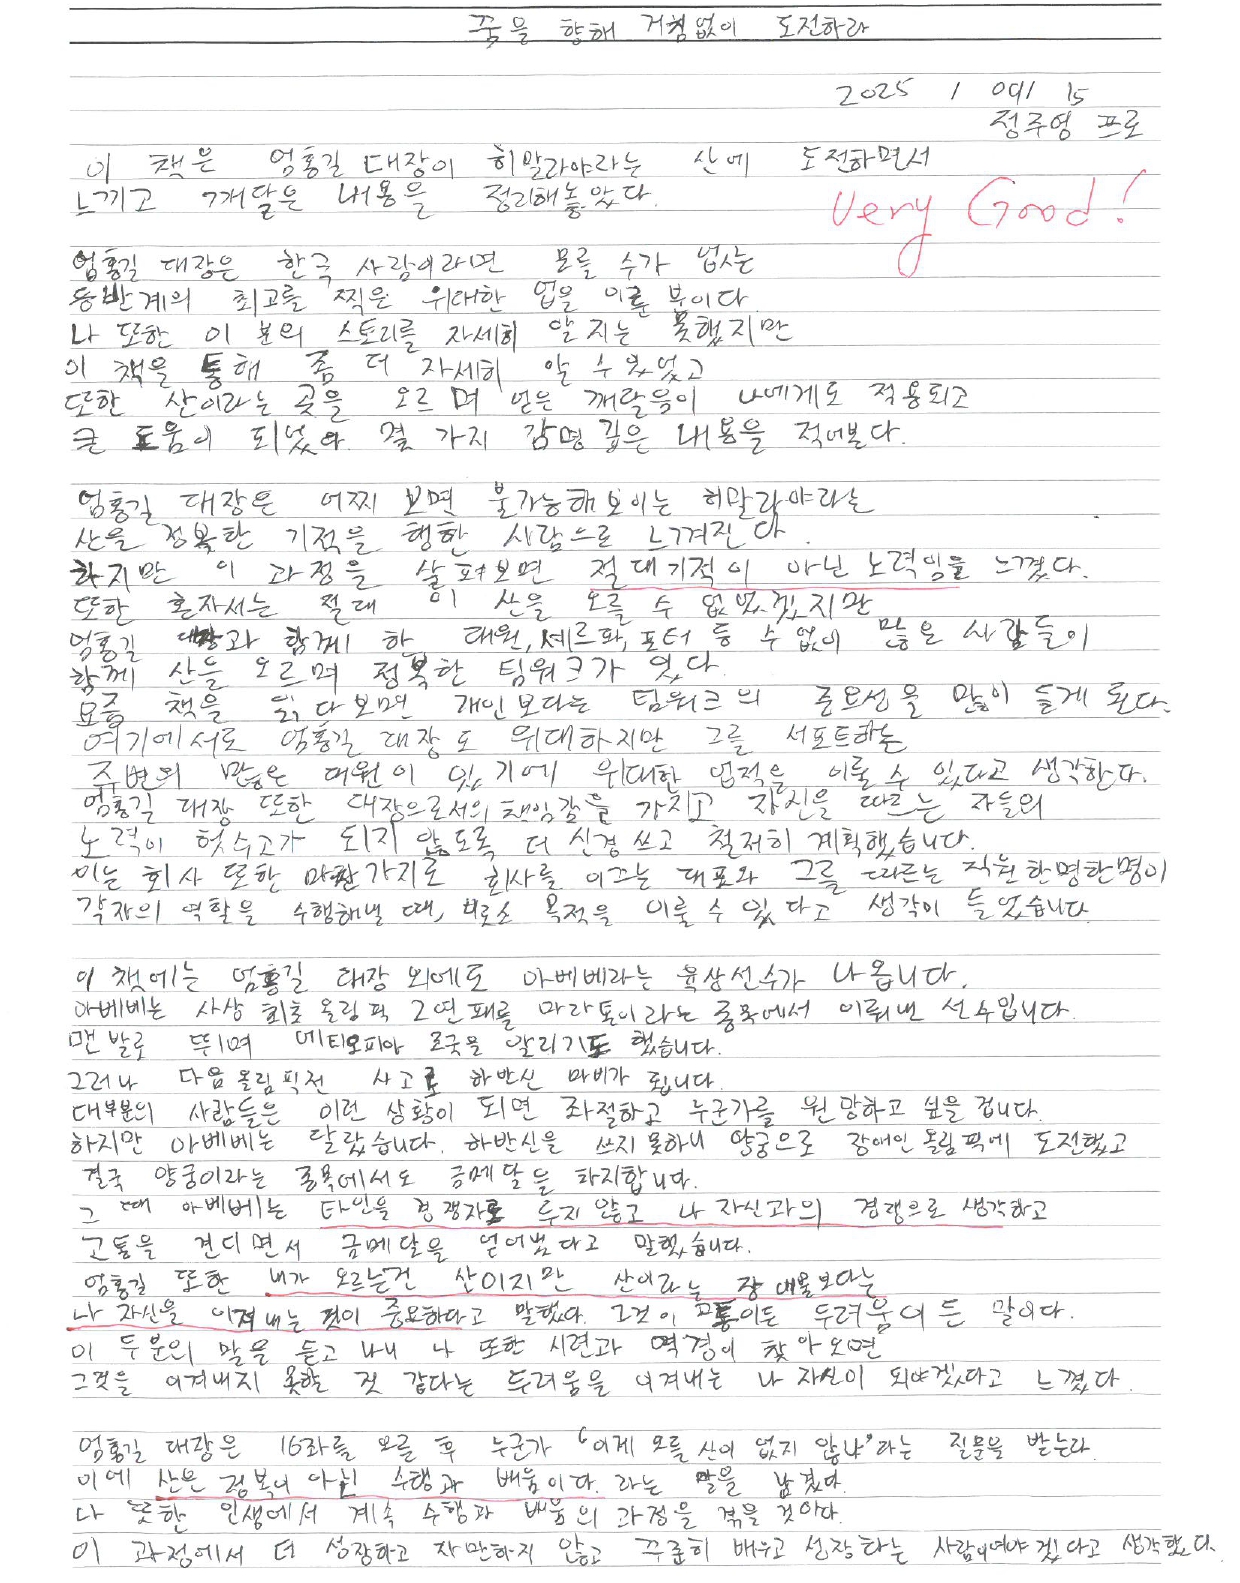 꿈을 향해 거침없이 도전하라
2025 / 09/ 15
정주영 프로
이 책은 엄홍길 대장이 히말라야라는 산에 도전하면서
느끼고 깨달은 내용을 정리해놓았다.
Very Good!
엄홍길 대장은 한국 사람이라면 모를 수가 없는
등반계의 최고를 찍은 위대한 업을 이룬 분이다
나 또한 이 분의 스토리를 자세히 알지는 못했지만
이 책을 통해 좀 더 자세히 알 수 있었고
또한 산이라는 곳을 오르며 얻은 깨달음이 나에게도 적용되고
큰 도움이 되었다. 몇 가지 감명 깊은 내용을 적어본다.
엄홍길 대장은 어찌 보면 불가능해보이는 히말라야라는
산을 정복한 기적을 행한 사람으로 느껴진다.
하지만 이 과정을 살펴보면 절대기적이 아닌 노력임을 느꼈다.
또한 혼자서는 절대 이 산을 오를 수 없었겠지만
엄홍길 대장과 함께 한 대원, 셰르파, 포터 등 수 없이 많은 사람들이
함께 산을 오르며 정복한 팀워크가 있다
요즘 책을 읽다보면 개인보다는 팀워크의 중요성을 많이 듣게 된다.
여기에서도 엄홍길 대장도 위대하지만 그를 서포트하는
주변의 많은 대원이 있기에 위대한 업적을 이룰 수 있다고 생각한다.
엄홍길 대장 또한 대장으로서의 책임감을 가지고 자신을 따르는 자들의
노력이 헛수고가 되지 않도록 더 신경 쓰고 철저히 계획했습니다.
이는 회사 또한 마찬가지로 회사를 이끄는 대표와 그를 따르는 직원 한명한명이
각자의 역할을 수행해낼 때, 비로소 목적을 이룰 수 있다고 생각이 들었습니다.
이 책에는 엄홍길 대장 외에도 아베베라는 육상선수가 나옵니다.
아베베는 사상 최초 올림픽 2연패를 마라톤이라는 종목에서 이뤄낸 선수입니다.
맨발로 뛰며 에티오피아 모국을 알리기도 했습니다.
그러나 다음올림픽전 사고로 하반신 마비가 됩니다.
대부분의 사람들은 이런 상황이 되면 좌절하고 누군가를 원망하고 싶을 겁니다.
하지만 아베베는 달랐습니다. 하반신을 쓰지 못하니 양궁으로 장애인 올림픽에 도전했고
결국 양궁이라는 종목에서도 금메달을 차지합니다.
그 때 아베베는 타인을 경쟁자로 두지 않고 나 자신과의 경쟁으로 생각하고
고통을 견디면서 금메달을 얻어냈다고 말했습니다.
엄홍길 또한 내가 오르는건 산이지만 산이라는 장애물보다는
나 자신을 이겨내는 것이 중요하다고 말했다. 그것이 고통이든 두려움이든 말이다.
이 두분의 말을 듣고 나니 나 또한 시련과 역경이 찾아오면
그것을 이겨내지 못할 것 같다는 두려움을 이겨내는 나 자신이 되야겠다고 느꼈다.
엄홍길 대장은 16좌를 오른 후 누군가 "이제 오를 산이 없지 않냐"라는 질문을 받는다
이에 산은 정복이 아닌 수행과 배움이다. 라는 말을 남겼다.
나 또한 인생에서 계속 수행과 배움의 과정을 겪을 것이다.
이 과정에서 더 성장하고 자만하지 않고 꾸준히 배우고 성장하는 사람이여야 겠다고 생각했다.